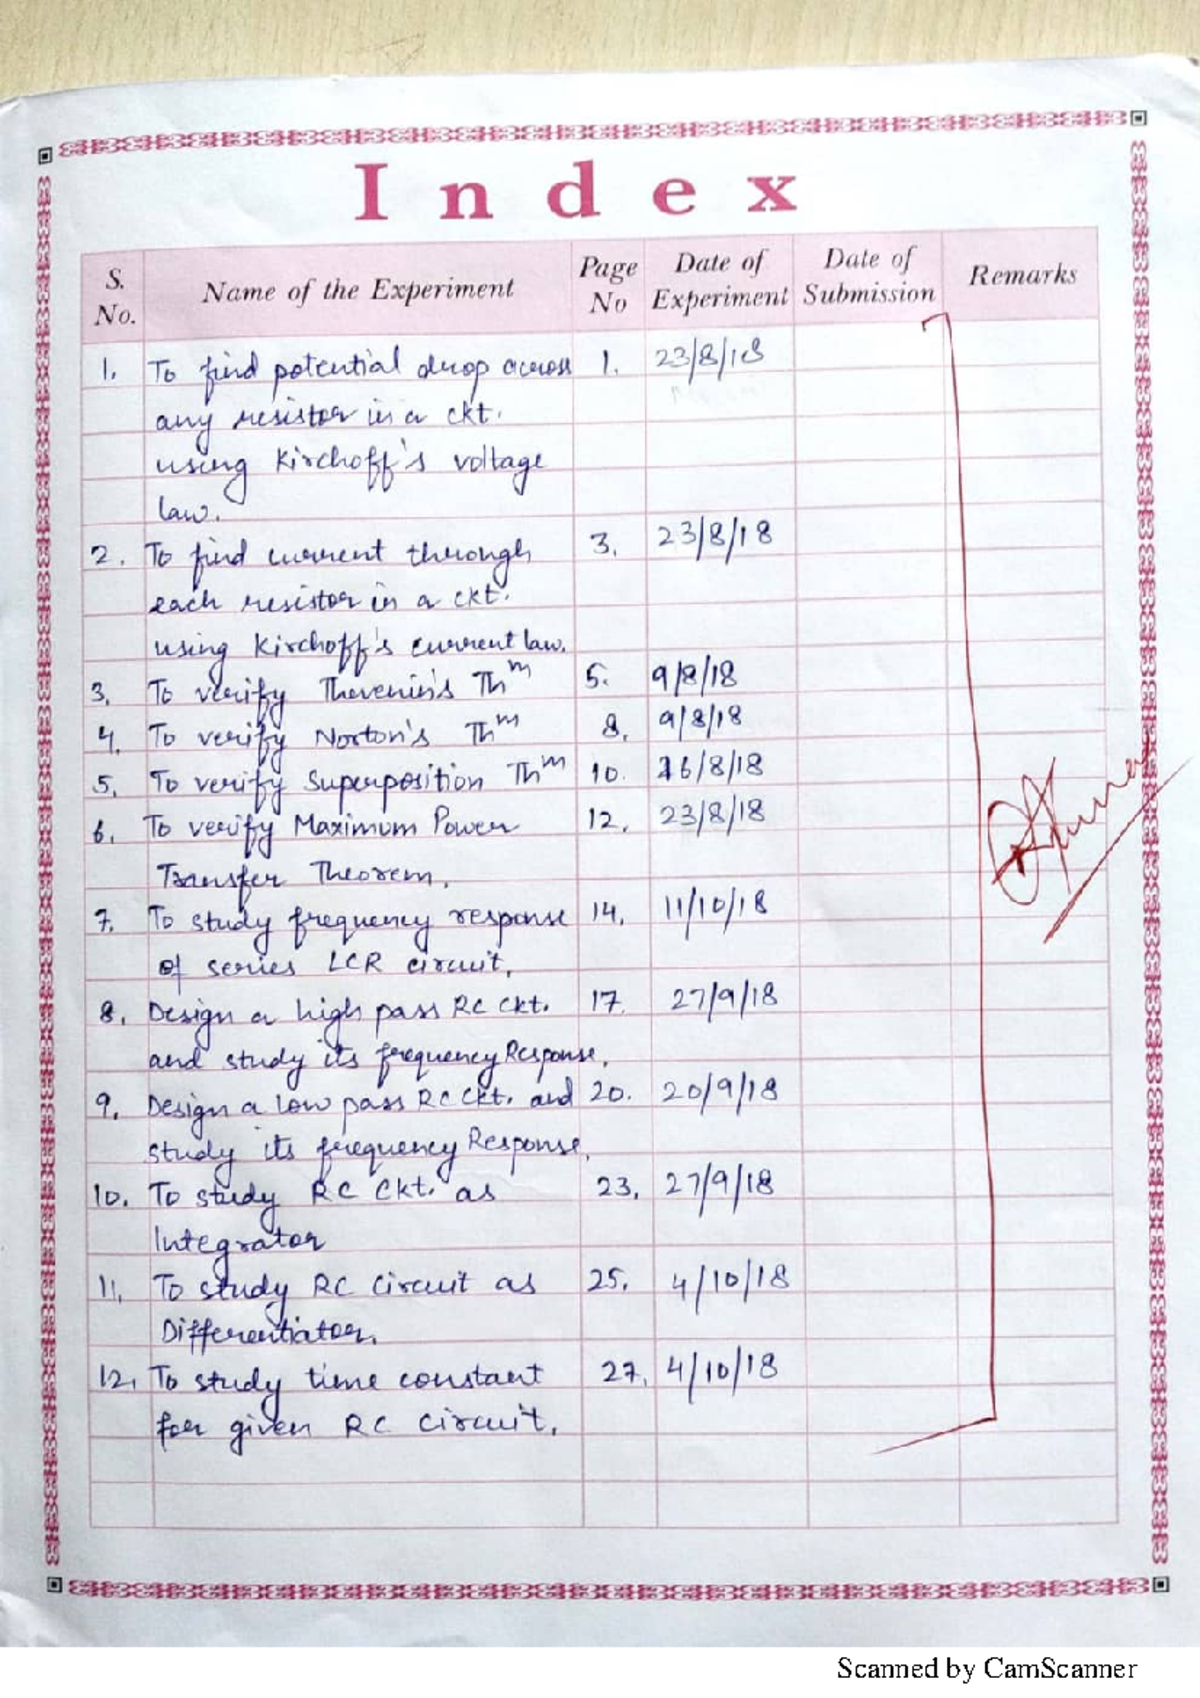 Index
S. No. Name of the Experiment Page No Date of Experiment Date of Submission Remarks
1. To find potential drop across 1. 23/8/18
any resistor in a ckt.
using Kirchoff's voltage
law.
2. To find current through 3. 23/8/18
each resistor in a ckt.
using Kirchoff's current law.
3. To verify Thevenin's Thm 5. 9/8/18
4. To verify Norton's Thm 8. 9/8/18
5. To verify Superposition Thm 10. 16/8/18
6. To verify Maximum Power 12. 23/8/18
Transfer Theorem.
7. To study frequency response 14. 11/10/18
of series LCR circuit.
8. Design a high pass RC Ckt. 17. 27/9/18
and study its frequency Response.
9. Design a low pass RC Ckt. and 20. 20/9/18
study its frequency Response.
10. To study RC Ckt. as 23. 27/9/18
Integrator
11. To study RC circuit as 25. 4/10/18
Differentiator.
12. To study time constant 27. 4/10/18
for given RC circuit.
Scanned by CamScanner